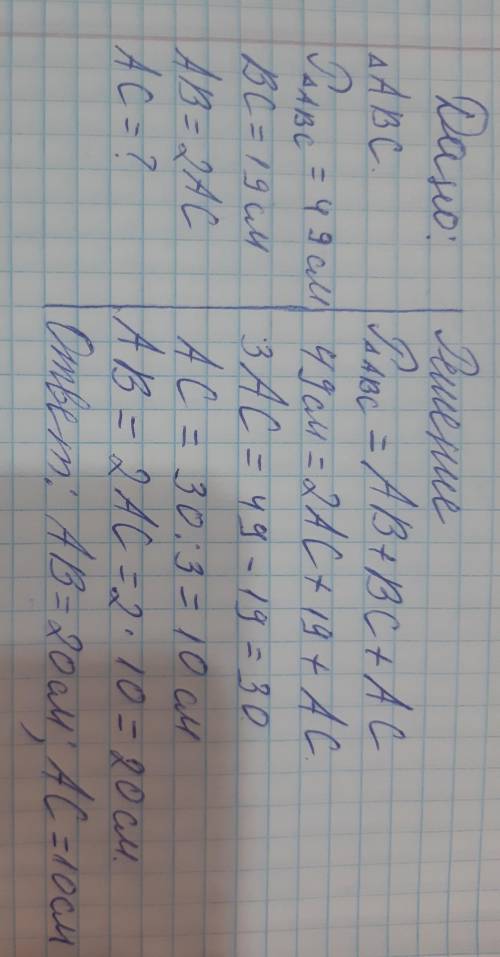 Дано:
△ABC.
P△ABC = 49 см
BC = 19 см
AB = 2AC
AC = ?
Решение
P△ABC = AB + BC + AC
49 см = 2AC + 19 + AC.
3AC = 49 - 19 = 30
AC = 30 : 3 = 10 см
AB = 2AC = 2 · 10 = 20 см.
Ответ: AB = 20 см; AC = 10 см